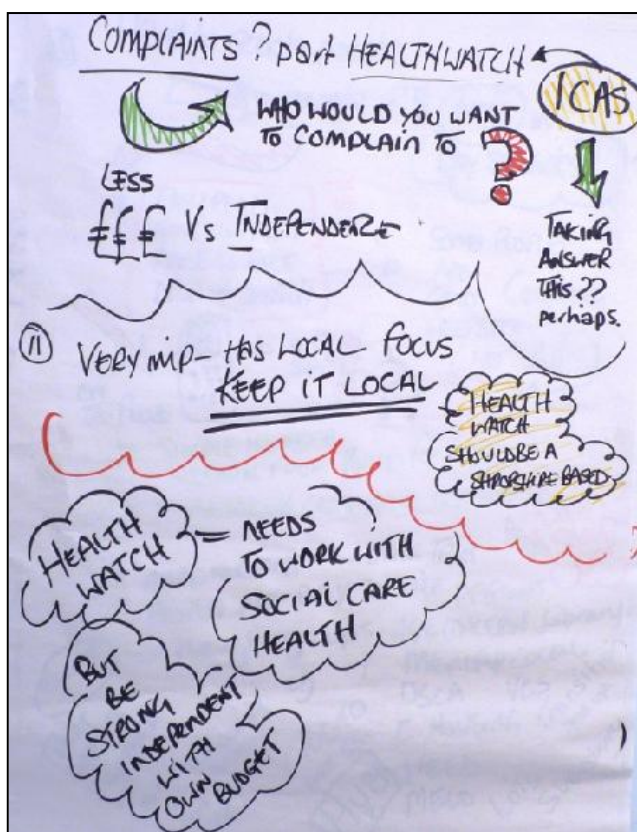 COMPLAINTS? part HEALTHWATCH
ICAS
WHO WOULD YOU WANT
TO COMPLAIN TO ?
LESS
£££ Vs INDEPENDENCE
TAKING
ANSWER
THIS??
perhaps.
11
VERY IMP - HAS LOCAL FOCUS
KEEP IT LOCAL
HEALTH
WATCH
SHOULD BE A
SHROPSHIRE BASED
HEALTH
WATCH
NEEDS
TO WORK WITH
SOCIAL CARE
HEALTH
BUT
BE
STRONG
INDEPENDENT
WITH
OWN BUDGET